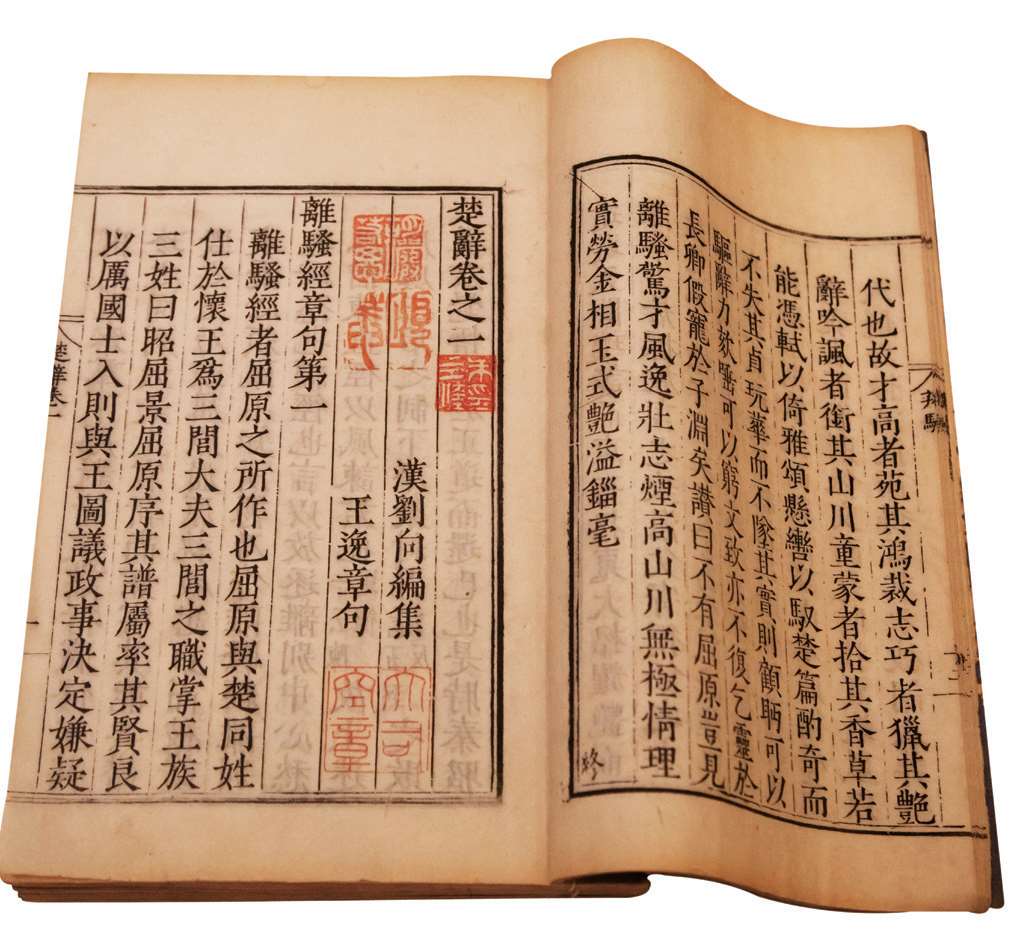 代也故才高者苑其鴻裁志巧者獵其艷
辭吟諷者銜其山川童蒙者拾其香草若
能憑軾以倚雅頌懸轡以馭楚篇酌奇而
不失其貞玩華而不墜其實則顧眄可以
驅辭力欬唾可以窮文致亦不復乞靈於
長卿假寵於子淵矣讚曰不有屈原豈見
離騷驚才風逸壯志煙高山川無極情理
實勞金相玉式艷溢錙毫 終
楚辭卷之一
漢劉向編集
王逸章句
離騷經章句第一
離騷經者屈原之所作也屈原與楚同姓
仕於懷王爲三閭大夫三閭之職掌王族
三姓曰昭屈景屈原序其譜屬率其賢良
以厲國士入則與王圖議政事決定嫌疑
楚辭卷一